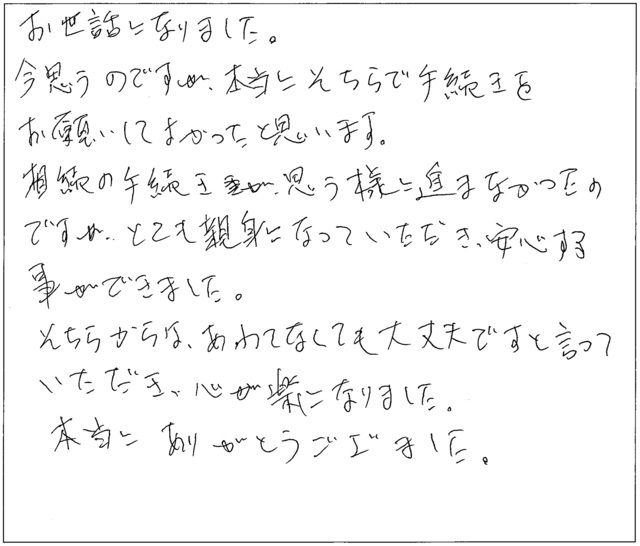 お世話になりました。
今思うのですが、本当にそちらで手続きを
お願いしてよかったと思います。
相続の手続きが、思う様に進まなかったの
ですが、とても親身になっていただき、安心する
事ができました。
そちらからは、あわてなくても大丈夫ですと言って
いただき、心が楽になりました。
本当にありがとうございました。